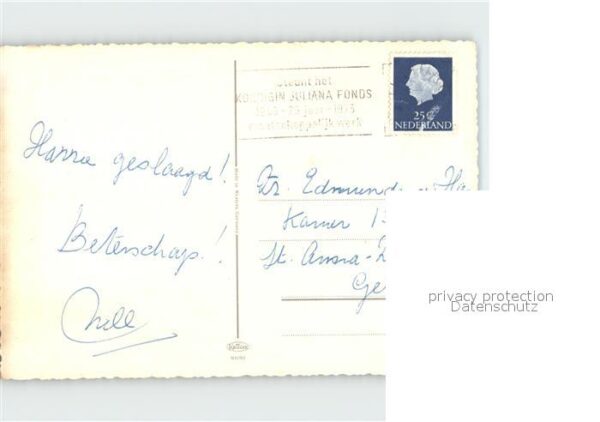 Steunt het
KONINGIN JULIANA FONDS
1948 - 25 jaar - 1973
maatschappelijk werk
25 c
NEDERLAND
Harra geslaagd!
Beterschap!
Nell
Dr. Edmund
Kamer 13
St. Anna-
Ge
privacy protection
Datenschutz